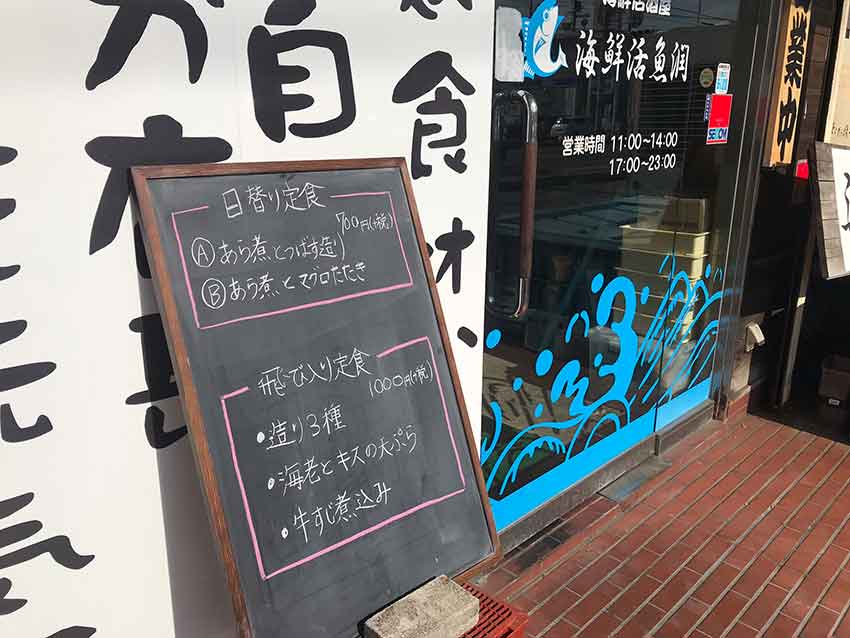 日替り定食
700円(+税)
Ⓐあら煮とつばす造り
Ⓑあら煮とマグロたたき
飛び入り定食
1000円(+税)
・造り3種
・海老とキスの天ぷら
・牛すじ煮込み
海鮮居酒屋
海鮮活魚潤
営業時間 11:00～14:00
17:00～23:00
SECOM
営業中
自
食材、
元気